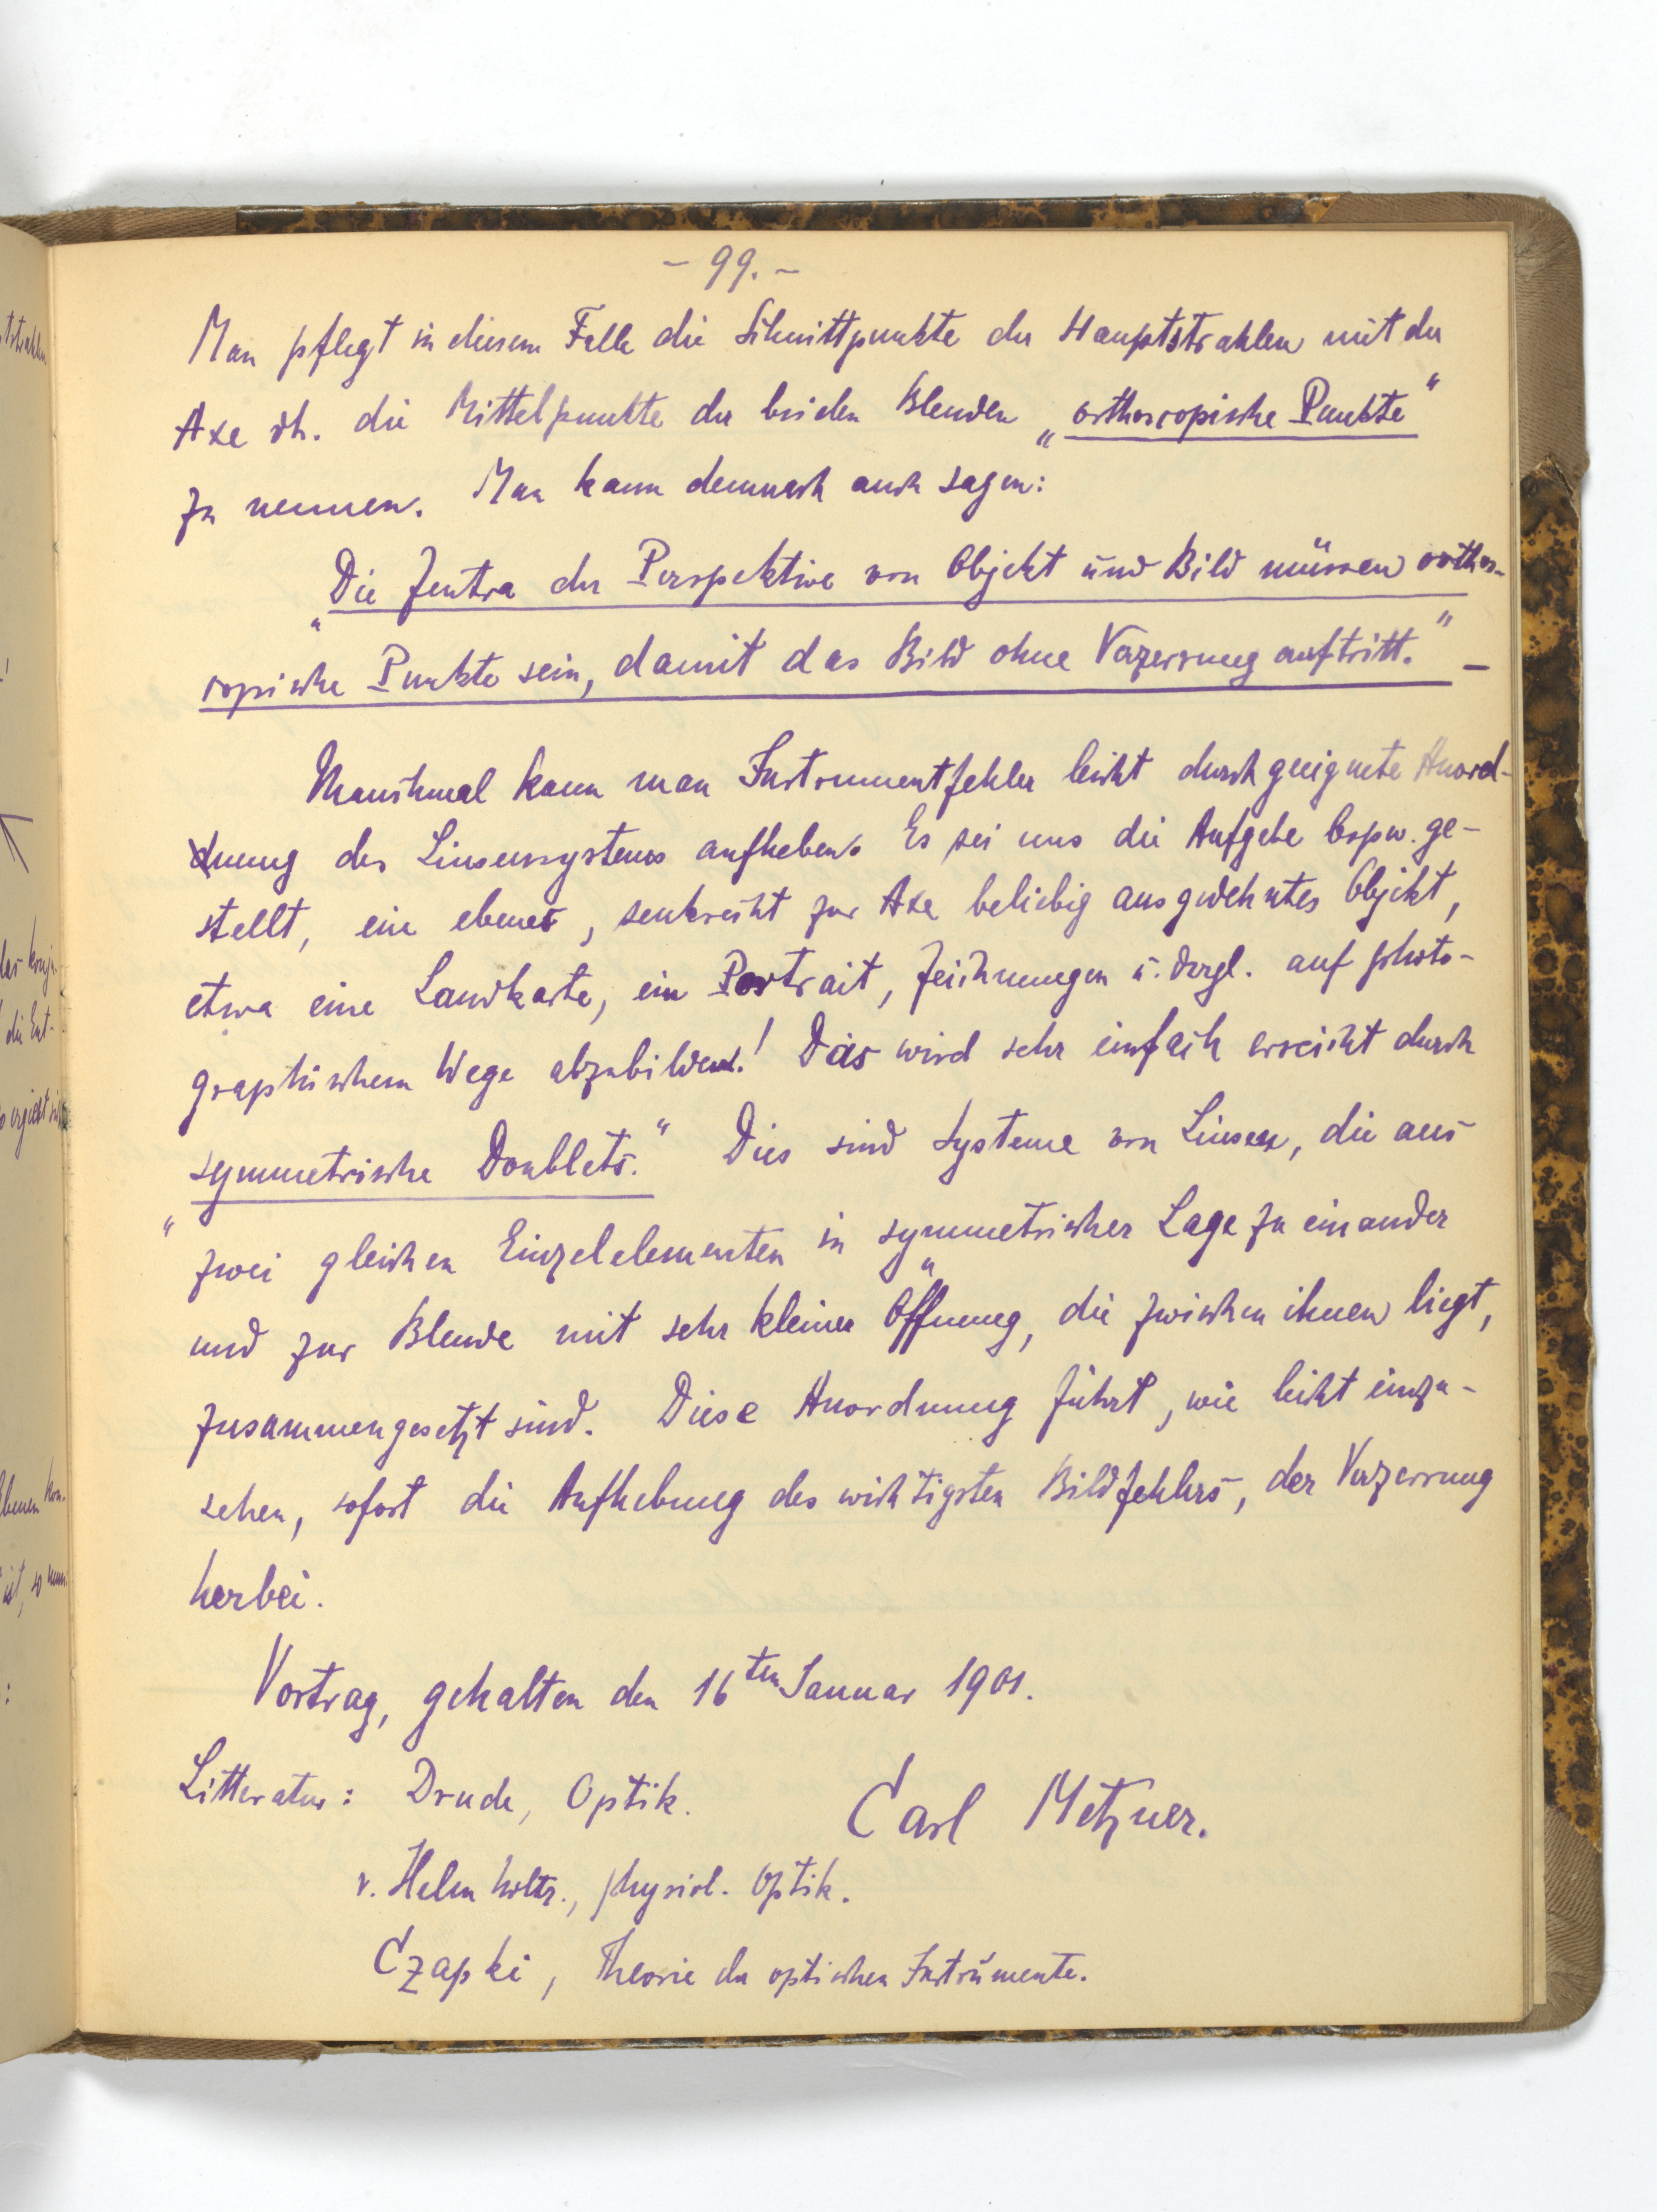 - 99. -
Man pflegt in diesem Falle die Schnittpunkte der Hauptstrahlen mit der
Axe dh. die Mittelpunkte der beiden Blenden „orthoscopische Punkte“
zu nennen. Man kann demnach auch sagen:
„Die Zentra der Perspektive von Objekt und Bild müssen orthos-
copische Punkte sein, damit das Bild ohne Verzerrung auftritt.“ –
Manchmal kann man Instrumentfehler leicht durch geeignete Anord-
nung des Linsensystems aufheben. Es sei uns die Aufgabe bspw. ge-
stellt, ein ebenes, senkrecht zur Axe beliebig ausgedehntes Objekt,
etwa eine Landkarte, ein Portrait, Zeichnungen u. dergl. auf photo-
graphischem Wege abzubilden! Das wird sehr einfach erreicht durch
„symmetrische Doublets.“ Dies sind Systeme von Linsen, die aus
zwei gleichen Einzelelementen in symmetrischer Lage zu einander
und zur Blende mit sehr kleiner Öffnung, die zwischen ihnen liegt,
zusammengesetzt sind. Diese Anordnung führt, wie leicht einzu-
sehen, sofort die Aufhebung des wichtigsten Bildfehlers, der Verzerrung
herbei.
Vortrag, gehalten den 16ten Januar 1901.
Litteratur: Drude, Optik.
Carl Metzner.
v. Helmholtz., physiol. Optik.
Czapski, Theorie der optischen Instrumente.